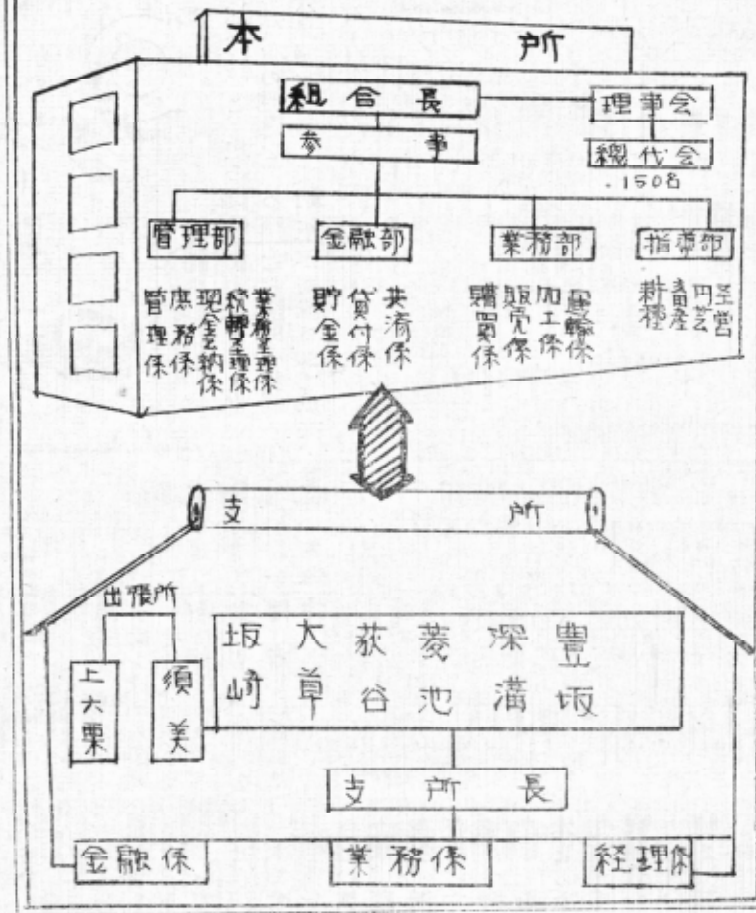 本所
組合長
理事会
参事
総代会
.150名
管理部
金融部
業務部
指導部
管理係
庶務係
現金出納係
業務整理係
貯金係
貸付係
共済係
購買係
販売係
加工係
運輸係
耕種
畜産
円芸
経営
支所
出張所
上六栗
須美
坂崎
大草
荻谷
菱池
深溝
豊坂
支所長
金融係
業務係
経理係